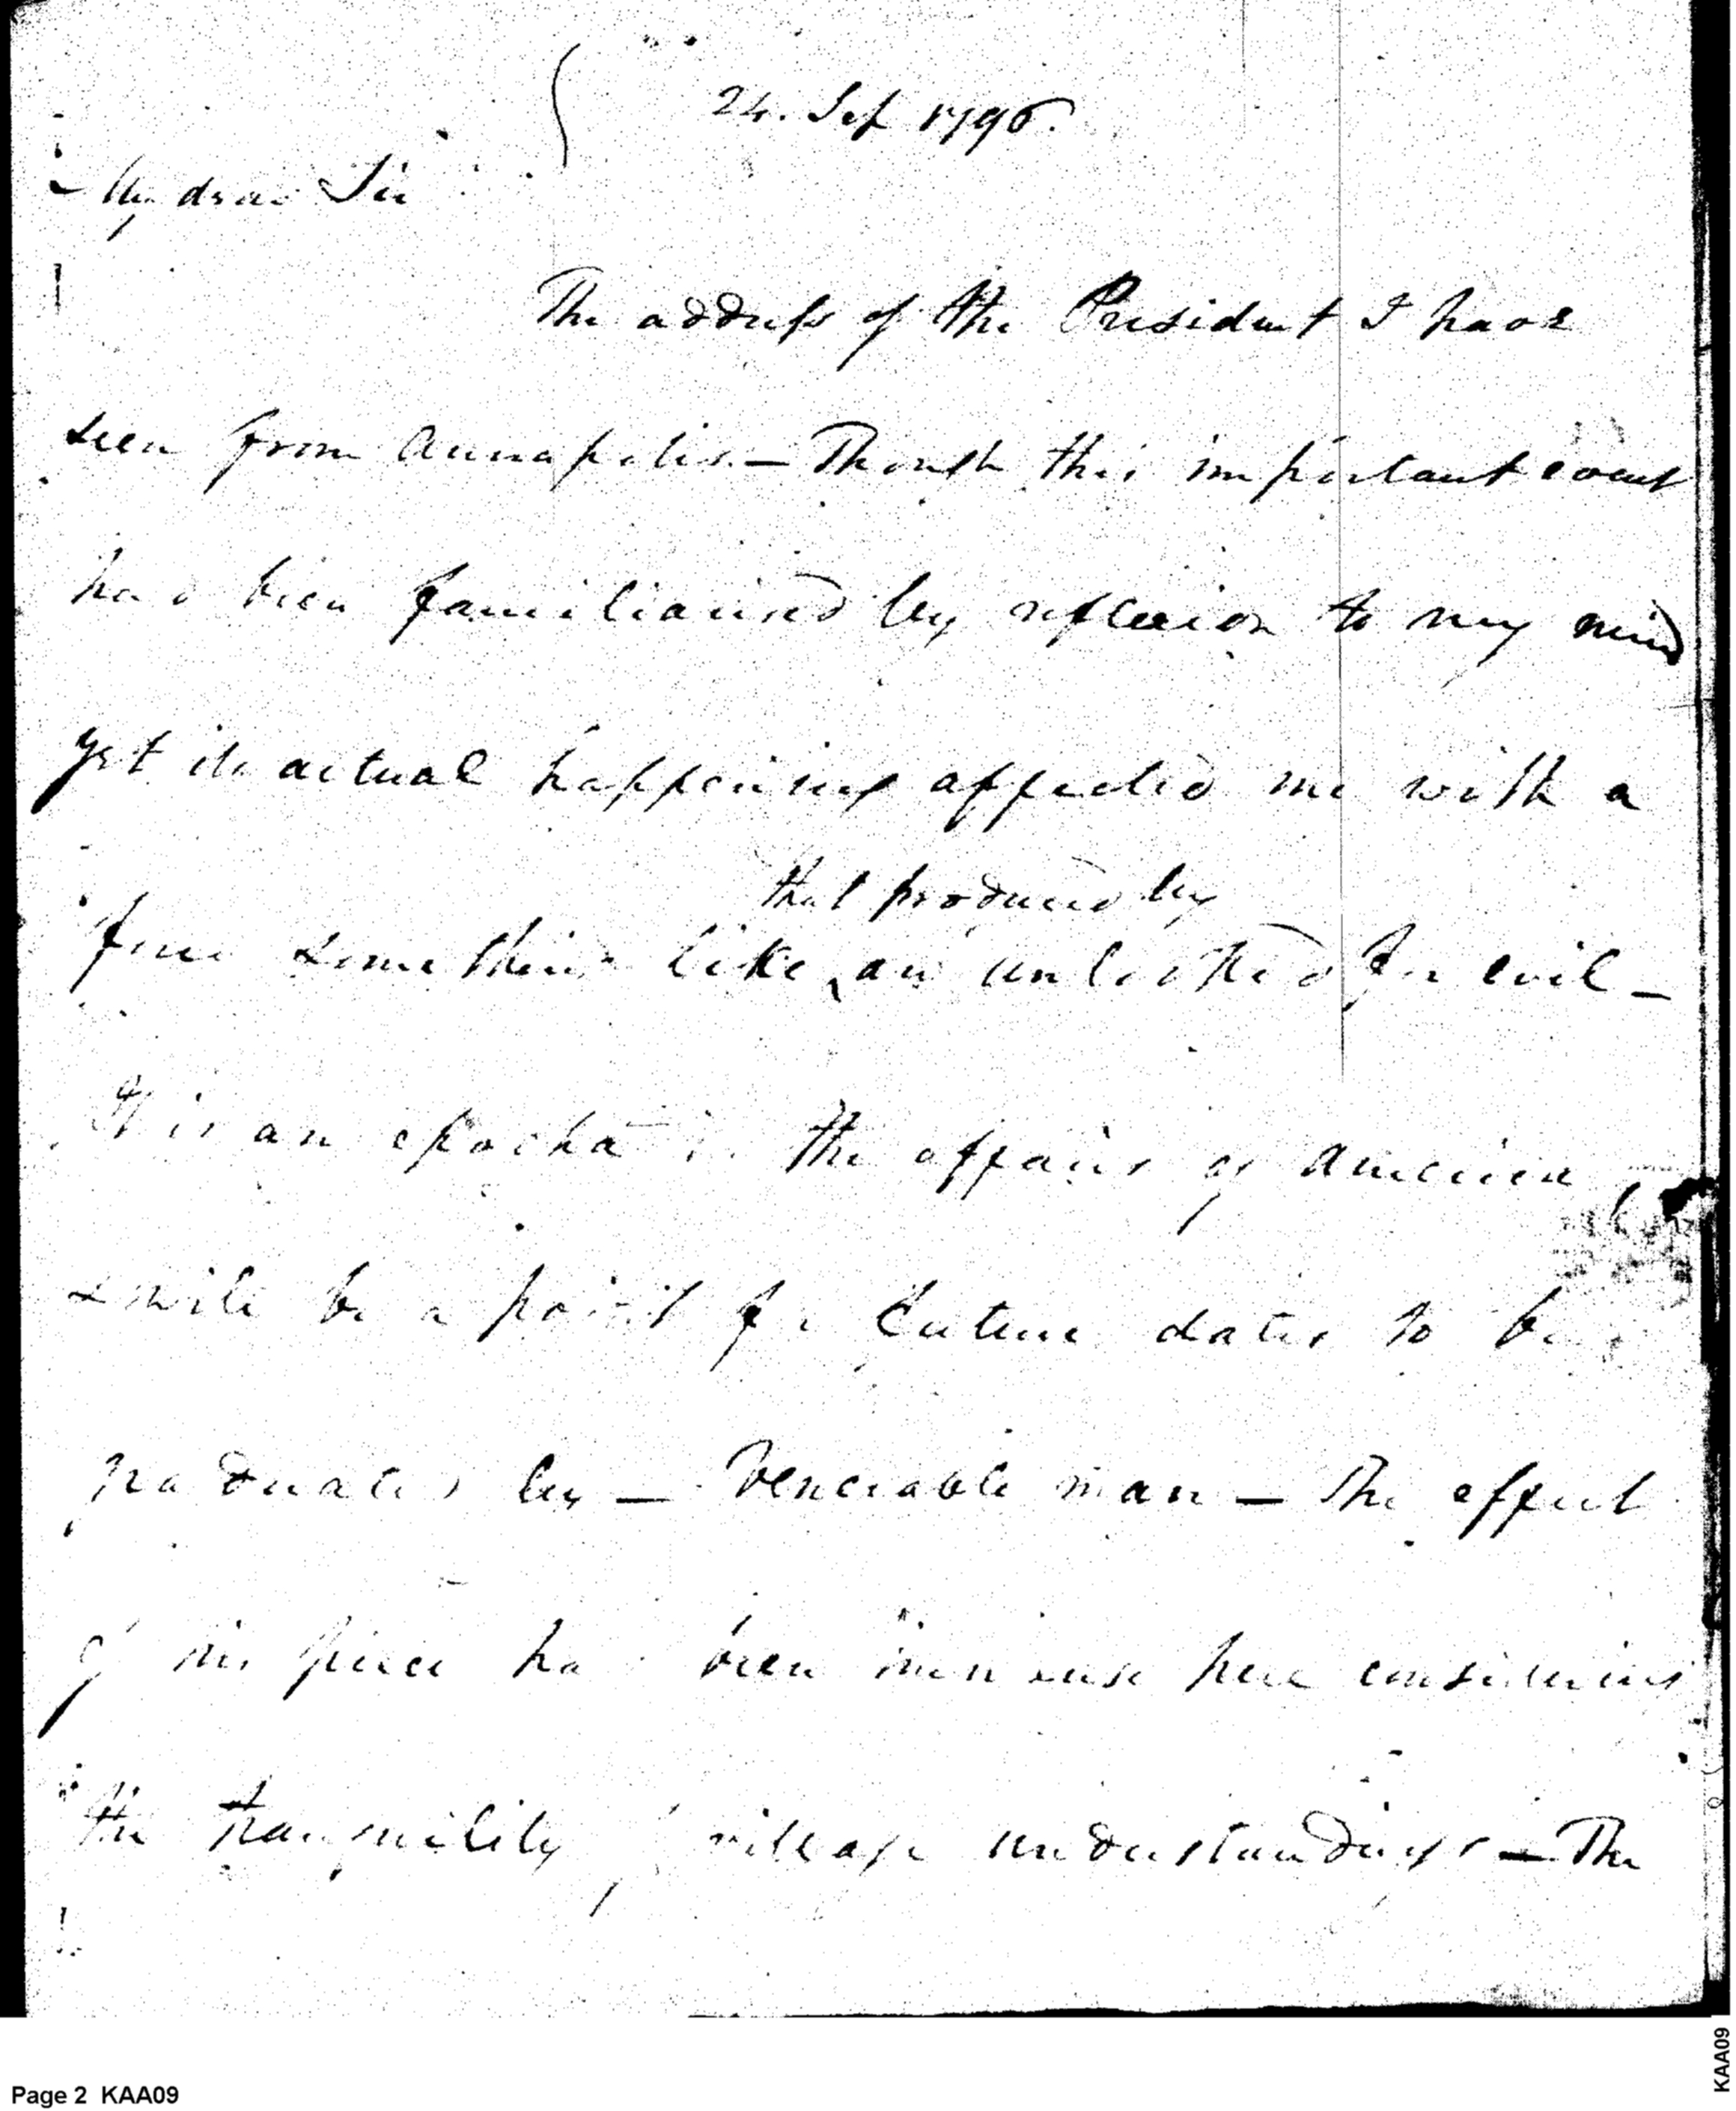 24. Sep 1796.
My dear Sir
The address of the President I have
seen from Annapolis. — Though this important event
had been familiarised by reflexion to my mind
yet its actual happening affected me with a
that produced by
force something like an unlooked for evil —
It is an epocha in the affairs of America
& will be a point for future dates to be
graduated by — Venerable man — The effect
of his piece has been immense here considering
the tranquility of village understandings — The
Page 2 KAA09
KAA09